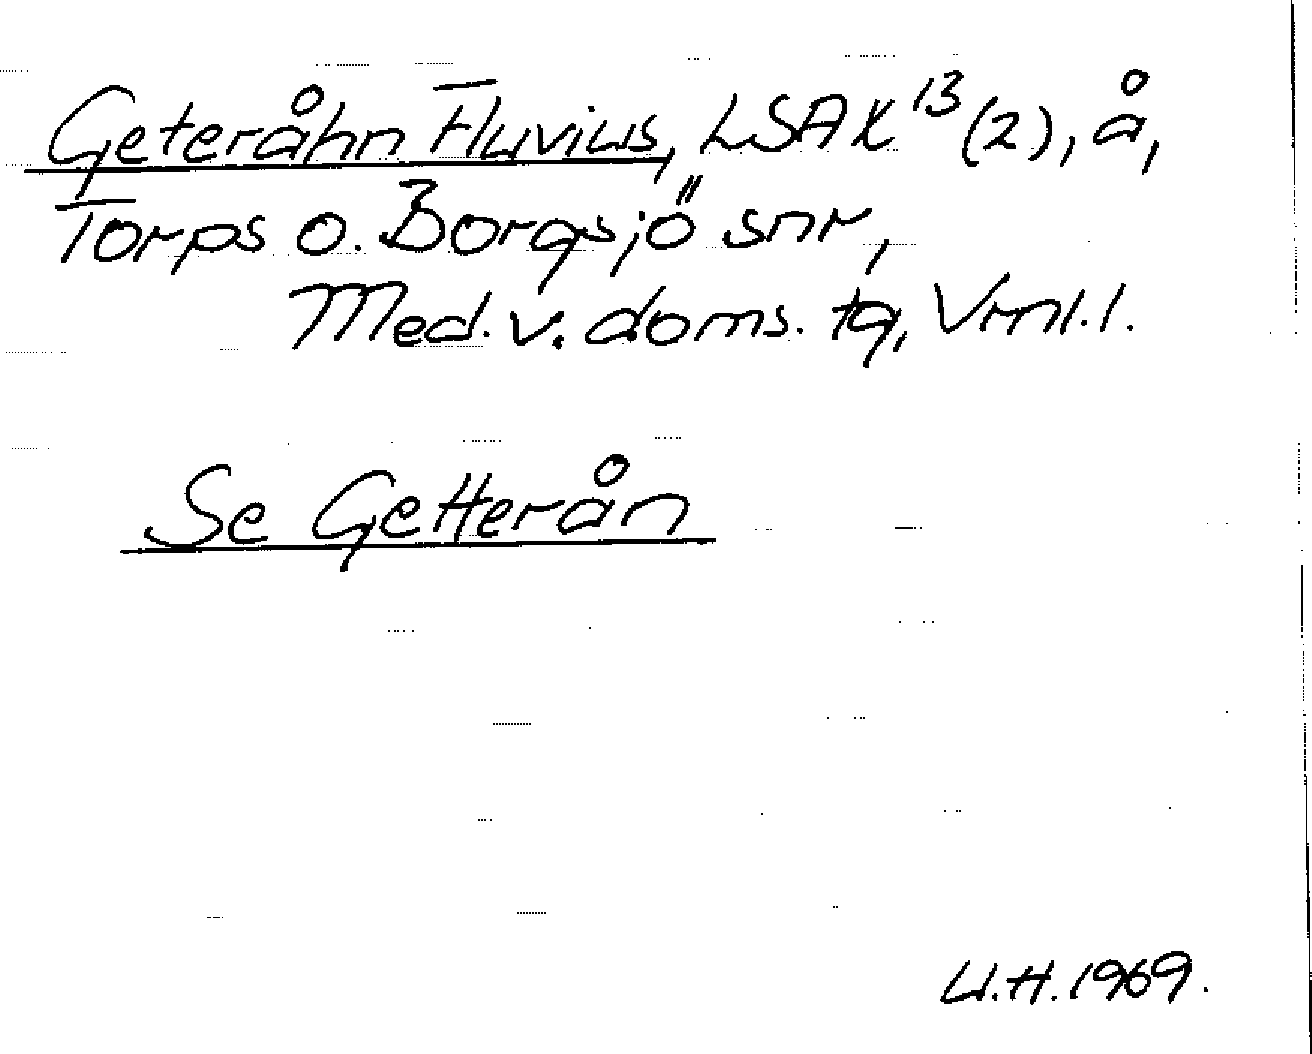 Geteråhn Fluvius, LSA K¹³(2), å,
Torps o. Borgsjö snr,
Med. v. doms. tg, Vml. l.
Se Getterån
U.H. 1969.